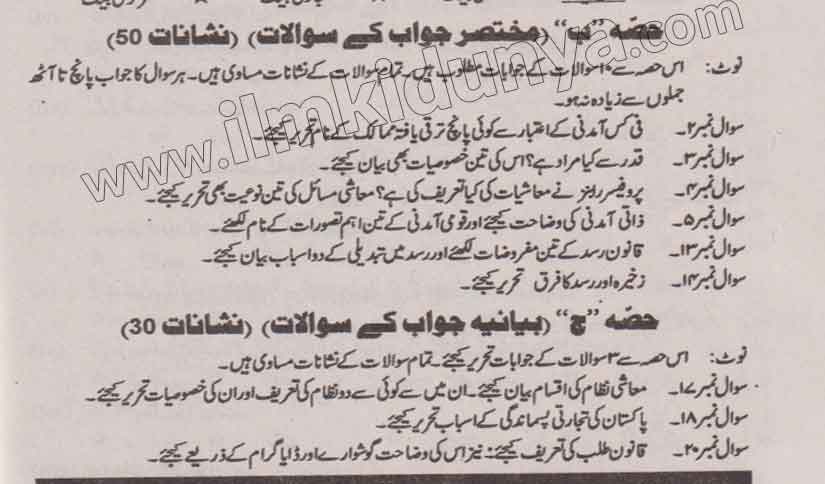 حصّہ ”ب“ (مختصر جواب کے سوالات) (نشانات 50)
نوٹ: اس حصہ سے ۱۰ سوالات کے جوابات مطلوب ہیں۔ تمام سوالات کے نشانات مساوی ہیں۔ ہر سوال کا جواب پانچ تا آٹھ
جملوں سے زیادہ نہ ہو۔
سوال نمبر ۲۔ فی کس آمدنی کے اعتبار سے کوئی پانچ ترقی یافتہ ممالک کے نام تحریر کیجئے۔
سوال نمبر ۳۔ قدر سے کیا مراد ہے؟ اس کی تین خصوصیات بھی بیان کیجئے۔
سوال نمبر ۴۔ پروفیسر رابنز نے معاشیات کی کیا تعریف کی ہے؟ معاشی مسائل کی تین نوعیت بھی تحریر کیجئے۔
سوال نمبر ۵۔ ذاتی آمدنی کی وضاحت کیجئے اور قومی آمدنی کے تین اہم تصورات کے نام لکھئے۔
سوال نمبر ۱۳۔ قانون رسد کے تین مفروضات لکھئے اور رسد میں تبدیلی کے دو اسباب بیان کیجئے۔
سوال نمبر ۱۴۔ زخیرہ اور رسد کا فرق تحریر کیجئے۔
حصّہ ”ج“ (بیانیہ جواب کے سوالات) (نشانات 30)
نوٹ: اس حصہ سے ۳ سوالات کے جوابات تحریر کیجئے۔ تمام سوالات کے نشانات مساوی ہیں۔
سوال نمبر ۱۷۔ معاشی نظام کی اقسام بیان کیجئے۔ ان میں سے کوئی سے دو نظام کی تعریف اور ان کی خصوصیات تحریر کیجئے۔
سوال نمبر ۱۸۔ پاکستان کی تجارتی پسماندگی کے اسباب تحریر کیجئے۔
سوال نمبر ۲۰۔ قانون طلب کی تعریف کیجئے: نیز اس کی وضاحت گوشوارے اور ڈایا گرام کے ذریعے کیجئے۔
www.ilmkidunya.com